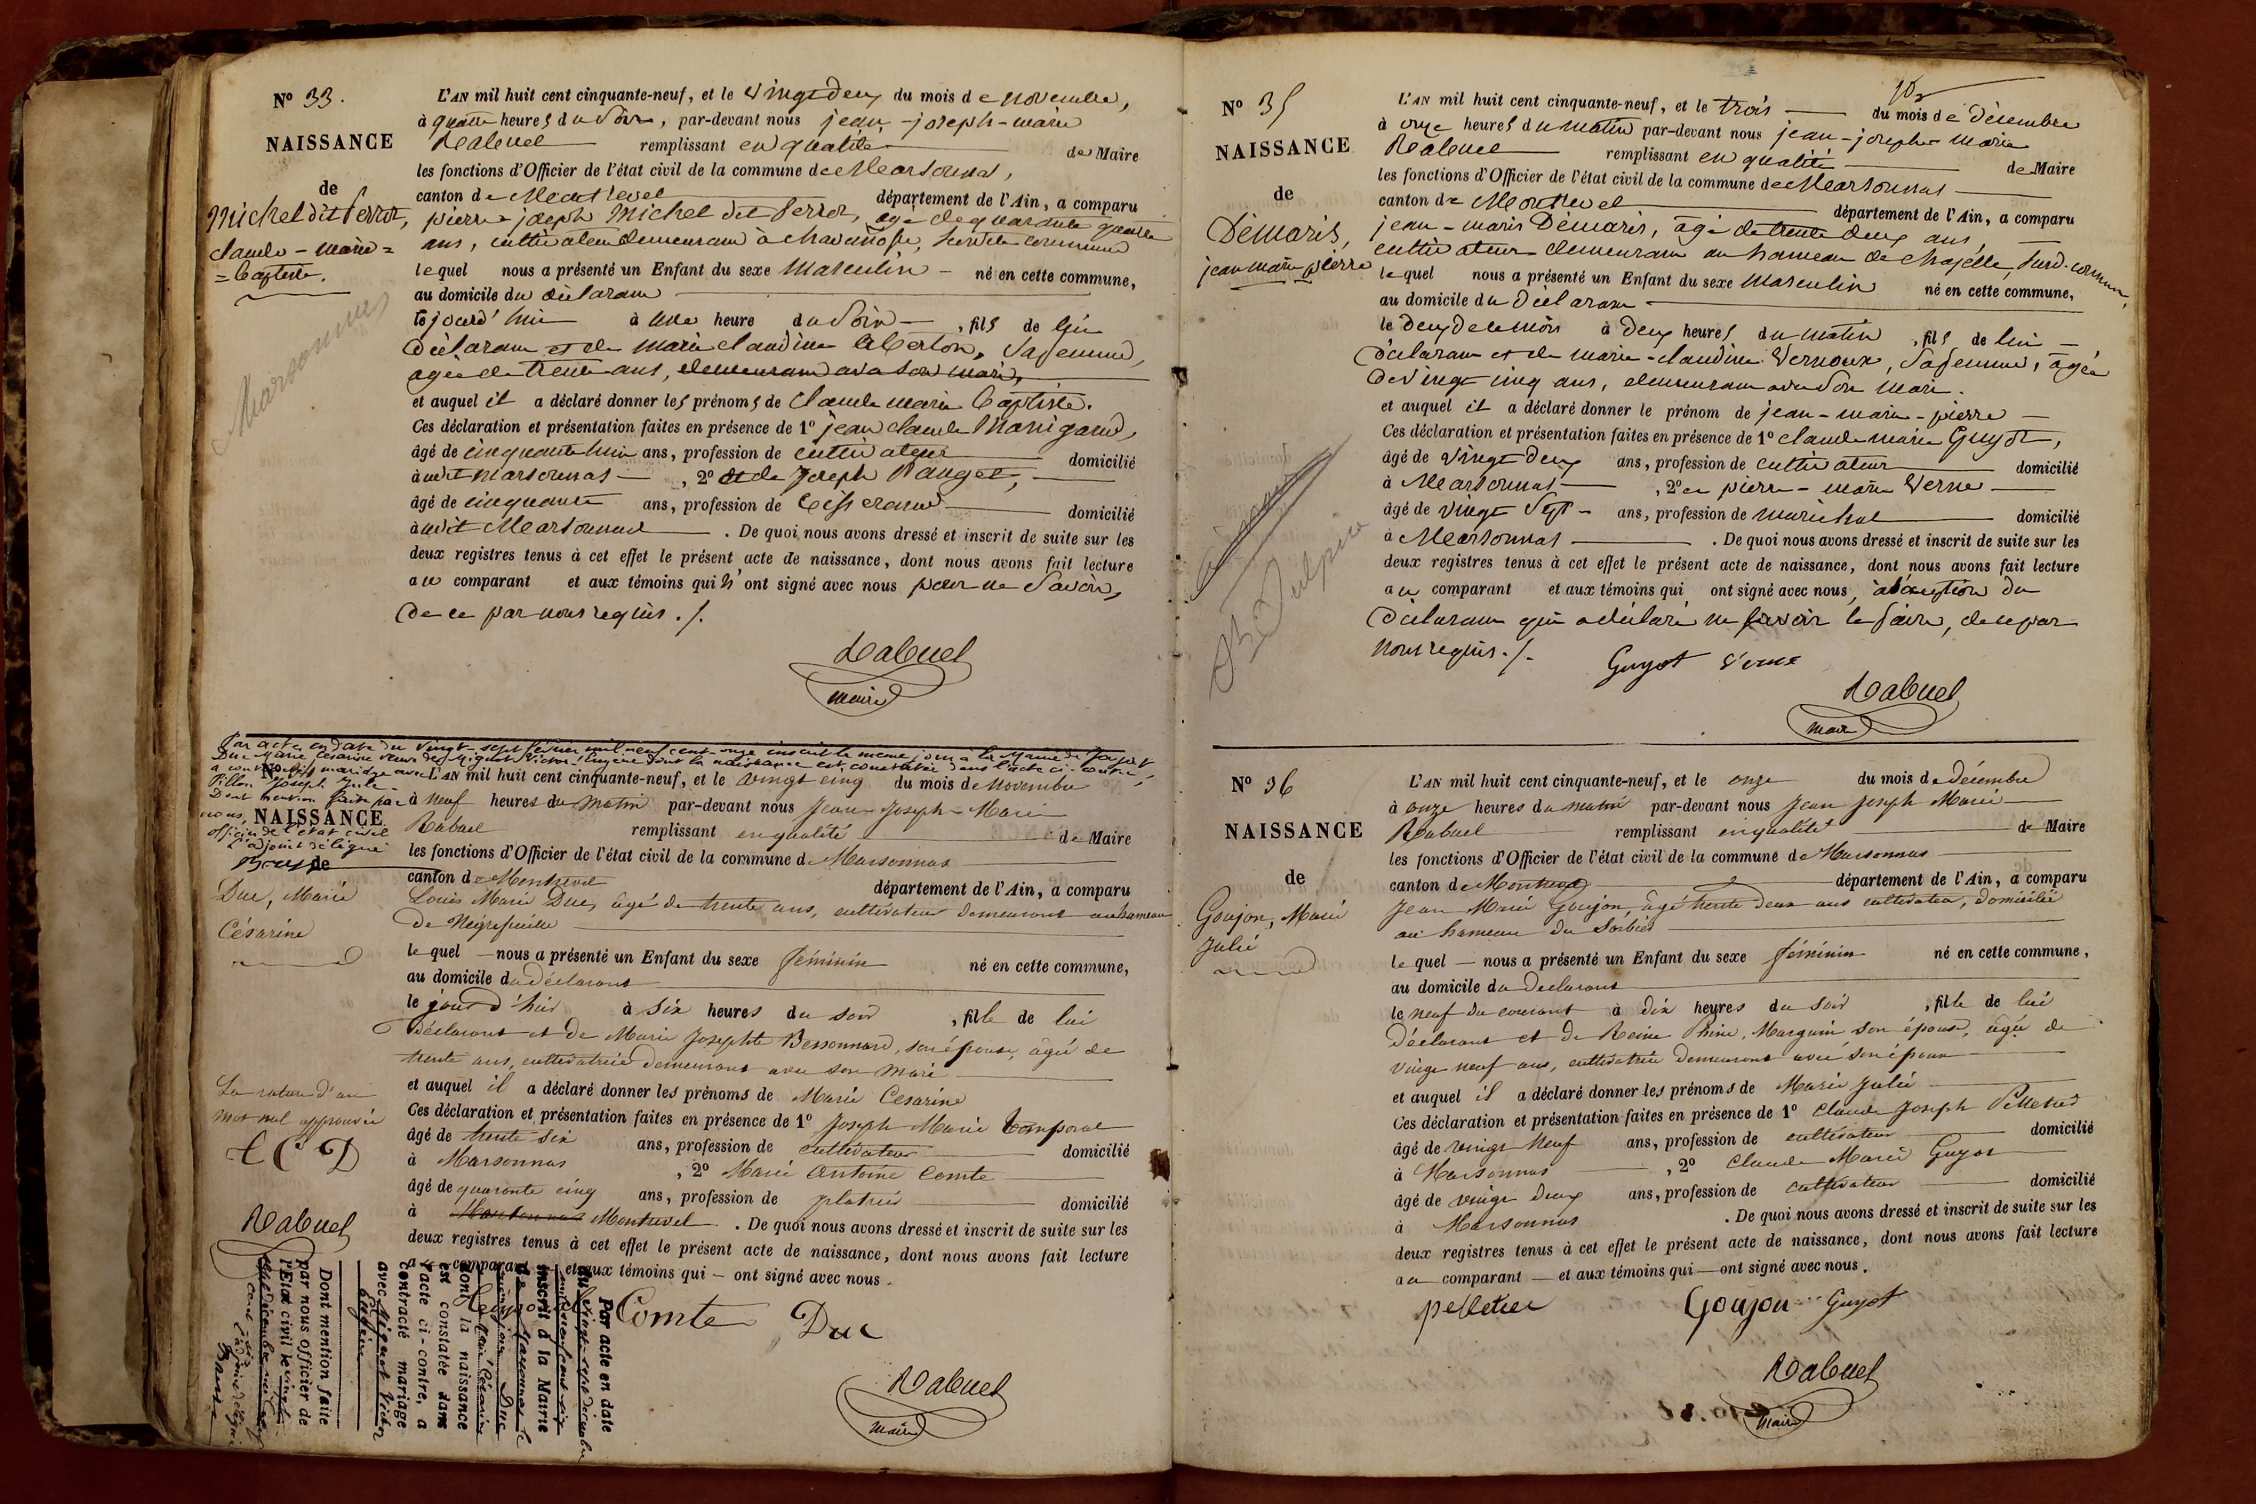 Nº 33.
NAISSANCE
de
Michel dit Perret,
claude - marie =
= Baptiste.
Marsonnas
L'AN mil huit cent cinquante-neuf, et le vingt deux du mois de novembre,
à quatre heures du Soir, par-devant nous jean-joseph-marie
Rabuel remplissant en qualité de Maire
les fonctions d'Officier de l'état civil de la commune de Marsonnas,
canton de Montrevel département de l'Ain, a comparu
pierre joseph Michel dit Perret, agé de quarante quatre
ans, cultivateur demeurant à
lequel nous a présenté un Enfant du sexe Masculin né en cette commune,
au domicile du déclarant
le jourd'hui à une heure du Soir, fils de lui
déclarant et de marie claudine Alberton, Sa femme,
agée de trente ans, demeurant avec son mari,
et auquel il a déclaré donner les prénoms de Claude marie Baptiste.
Ces déclaration et présentation faites en présence de 1º jean claude Manigand,
âgé de cinquante huit ans, profession de cultivateur domicilié
audit marsonnas, 2º et de Joseph Ranget,
âgé de cinquante ans, profession de tisserand domicilié
audit Marsonnas. De quoi nous avons dressé et inscrit de suite sur les
deux registres tenus à cet effet le présent acte de naissance, dont nous avons fait lecture
au comparant et aux témoins qui n'ont signé avec nous pour ne Savoir,
de ce par nous requis ./.
Rabuel
maire
Par acte en date du vingt-sept février mil neuf cent onze inscrit le meme jour à la Mairie de Jayat
Duc Marie Césarine veuve de Miguet Victor Eugène dont la naissance est constatée dans l'acte ci-contre,
a contracté mariage avec
Pillon Joseph Jule
Dont mention faite par
nous,
officier de l'état civil
L'adjoint délégué
Nº 34
NAISSANCE
de
Duc, Marie
Césarine
La rature d'un
mot nul approuvée
Rabuel
L'AN mil huit cent cinquante-neuf, et le vingt cinq du mois de Novembre
à neuf heures du matin par-devant nous Jean-Joseph-Marie
Rabuel remplissant en qualité de Maire
les fonctions d'Officier de l'état civil de la commune de Marsonnas
canton de Montrevel département de l'Ain, a comparu
Louis Marie Duc, âgé de trente ans, cultivateur demeurant au hameau
de Négrefeuille
lequel nous a présenté un Enfant du sexe féminin né en cette commune,
au domicile du déclarant
le jour d'hier à six heures du soir, fille de lui
déclarant et de Marie Josephte Bessonnard, son épouse, âgée de
trente ans, cultivatrice demeurant avec son mari
et auquel il a déclaré donner les prénoms de Marie Césarine
Ces déclaration et présentation faites en présence de 1º Joseph Marie Temporal
âgé de trente six ans, profession de cultivateur domicilié
à Marsonnas, 2º Marie Antoine Comte
âgé de quarante cinq ans, profession de platrier domicilié
à Marsonnas Montrevel. De quoi nous avons dressé et inscrit de suite sur les
deux registres tenus à cet effet le présent acte de naissance, dont nous avons fait lecture
au comparant et aux témoins qui - ont signé avec nous.
Comte Duc
Rabuel
maire
Par acte en date
du vingt sept décembre
inscrit à la Mairie
de Marsonnas le
Duc
Marie Césarine
dont la naissance
est constatée dans
l'acte ci-contre, a
contracté mariage
avec Miguet Victor
Eugène
Dont mention faite
par nous officier de
l'Etat civil le vingt
Nº 35
NAISSANCE
de
Démaris,
jean marie pierre
L'AN mil huit cent cinquante-neuf, et le trois du mois de décembre
à onze heures du matin par-devant nous jean-joseph-marie
Rabuel remplissant en qualité de Maire
les fonctions d'Officier de l'état civil de la commune de Marsonnas
canton de Montrevel département de l'Ain, a comparu
jean-marie Démaris, agé de trente deux ans,
cultivateur demeurant au hameau de chazelle, Susd. commune,
lequel nous a présenté un Enfant du sexe Masculin né en cette commune,
au domicile du déclarant
le deux de ce mois à deux heures du matin, fils de lui
déclarant et de marie-claudine Vernoux, Sa femme, agée
de vingt cinq ans, demeurant avec Son mari.
et auquel il a déclaré donner le prénom de jean-marie-pierre
Ces déclaration et présentation faites en présence de 1º claude marie Guyot,
âgé de vingt deux ans, profession de cultivateur domicilié
à Marsonnas, 2º et pierre-marie Verne
âgé de vingt Sept ans, profession de maréchal domicilié
à Marsonnas. De quoi nous avons dressé et inscrit de suite sur les
deux registres tenus à cet effet le présent acte de naissance, dont nous avons fait lecture
au comparant et aux témoins qui ont signé avec nous, à l'exception du
déclarant qui a déclaré ne savoir le faire, de ce par
nous requis ./.
Guyot Verne
Rabuel
maire
Nº 36
NAISSANCE
de
Goujon, Marie
Julie
L'AN mil huit cent cinquante-neuf, et le onze du mois de décembre
à onze heures du matin par-devant nous Jean Joseph Marie
Rabuel remplissant en qualité de Maire
les fonctions d'Officier de l'état civil de la commune de Marsonnas
canton de Montrevel département de l'Ain, a comparu
Jean Marie Goujon, âgé trente deux ans cultivateur, domicilié
au hameau du Sorbier
lequel nous a présenté un Enfant du sexe féminin né en cette commune,
au domicile du déclarant
le neuf du courant à dix heures du soir, fille de lui
déclarant et de Reine Marguin son épouse, âgée de
vingt neuf ans, cultivatrice demeurant avec son époux
et auquel il a déclaré donner les prénoms de Marie Julie
Ces déclaration et présentation faites en présence de 1º Claude Joseph Pelletier
âgé de vingt neuf ans, profession de cultivateur domicilié
à Marsonnas, 2º Claude Marie Guyot
âgé de vingt deux ans, profession de cultivateur domicilié
à Marsonnas. De quoi nous avons dressé et inscrit de suite sur les
deux registres tenus à cet effet le présent acte de naissance, dont nous avons fait lecture
au comparant et aux témoins qui ont signé avec nous.
pelletier Goujon Guyot
Rabuel
maire